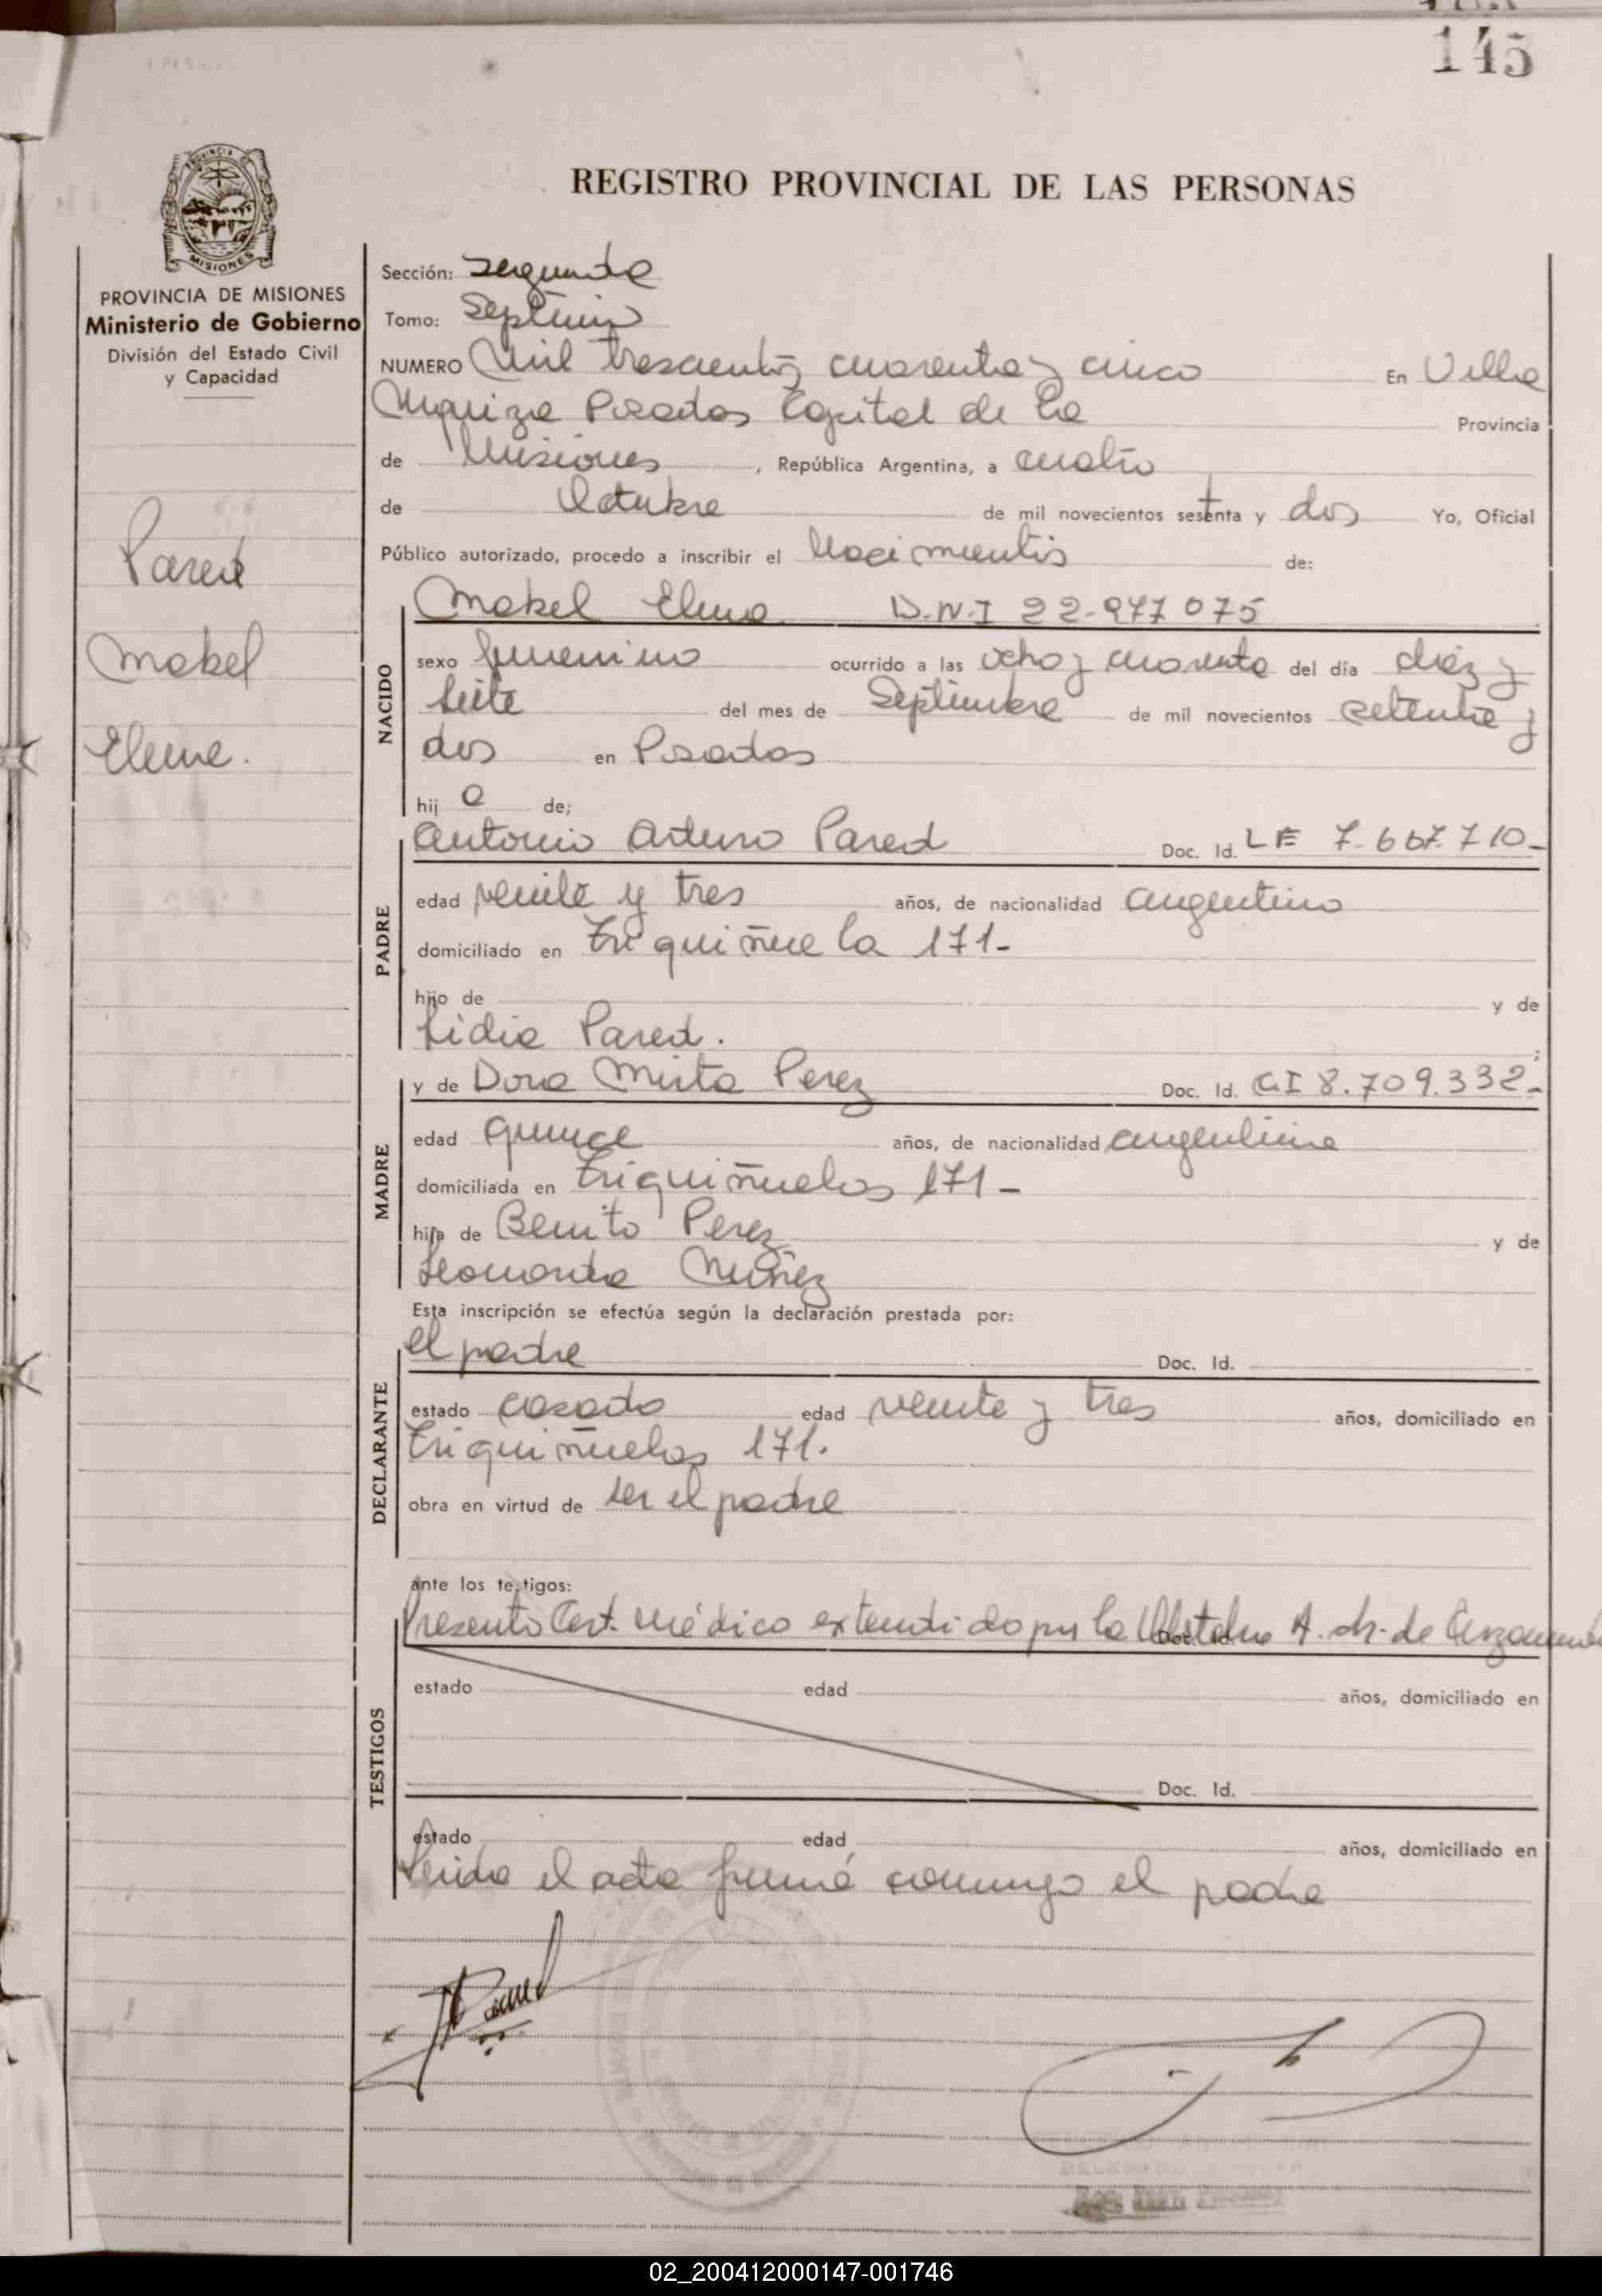 145
REGISTRO PROVINCIAL DE LAS PERSONAS
PROVINCIA DE
MISIONES
PROVINCIA DE MISIONES
Ministerio de Gobierno
División del Estado Civil
y Capacidad
Pared
Mabel
Elena.
Sección: Segunda
Tomo: Septimo
NUMERO Mil trescientos cuarenta y cinco En Villa
Urquiza Posadas Capital de la Provincia
de Misiones, República Argentina, a cuatro
de Octubre de mil novecientos setenta y dos Yo, Oficial
Público autorizado, procedo a inscribir el Nacimiento de:
Mabel Elena D.N.I 22-977 075
NACIDO
sexo femenino ocurrido a las ocho y cuarenta del día diez y
siete del mes de Septiembre de mil novecientos setenta y
dos en Posadas
hij a de;
Antonio Arturo Pared Doc. Id. LE 7.667.710-
PADRE
edad veinte y tres años, de nacionalidad argentino
domiciliado en Triquiñuela 171-
hijo de y de
Lidia Pared.
y de Dora Mirta Perez Doc. Id. CI 8.709.332-
MADRE
edad quince años, de nacionalidad argentina
domiciliada en Triquiñuelas 171-
hija de Benito Perez y de
Leonarda Nuñez
Esta inscripción se efectúa según la declaración prestada por:
el padre Doc. Id.
DECLARANTE
estado casado edad veinte y tres años, domiciliado en
Triquiñuelas 171.
obra en virtud de ser el padre
ante los testigos:
Presento Cert. Médico extendido por la Obstetra A. de Doc. Id.
TESTIGOS
estado edad años, domiciliado en
Doc. Id.
estado edad años, domiciliado en
Leida el acta firmá conmigo el padre
Pared
02_200412000147-001746